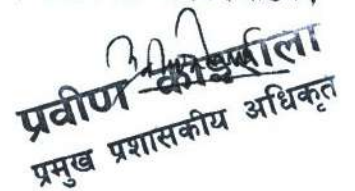 प्रवीण कोइराला
प्रमुख प्रशासकीय अधिकृत